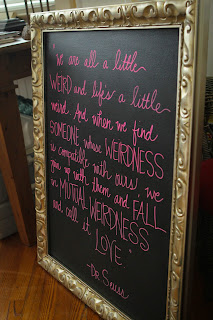 "we are all a little
WEIRD and life's a little
weird. And when we find
SOMEONE whose WEIRDNESS
is compatible with ours, we
join up with them and FALL
in MUTUAL WEIRDNESS
and call it
LOVE"
-Dr. Seuss